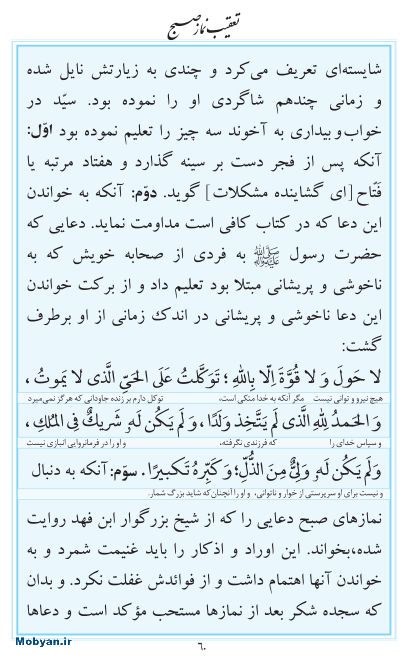 تعقیب نماز صبح
شایسته‌ای تعریف می‌کرد و چندی به زیارتش نایل شده
و زمانی چندهم شاگردی او را نموده بود. سیّد در
خواب و بیداری به آخوند سه چیز را تعلیم نموده بود اوّل:
آنکه پس از فجر دست بر سینه گذارد و هفتاد مرتبه یا
فَتّاح [ای گشاینده مشکلات] گوید. دوّم: آنکه به خواندن
این دعا که در کتاب کافی است مداومت نماید. دعایی که
حضرت رسول ﷺ به فردی از صحابه خویش که به
ناخوشی و پریشانی مبتلا بود تعلیم داد و از برکت خواندن
این دعا ناخوشی و پریشانی در اندک زمانی از او برطرف
گشت:
لا حَولَ وَ لا قُوَّةَ اِلّا بِاللهِ ؛ تَوَکَّلتُ عَلَی الحَیِّ الَّذی لا یَموتُ ،
هیچ نیرو و توانی نیست مگر آنکه به خدا متکی است، توکل دارم بر زنده جاودانی که هرگز نمی‌میرد
وَ الحَمدُ لِلهِ الَّذی لَم یَتَّخِذ وَلَدًا ، وَ لَم یَکُن لَهُ شَریكٌ فِی المُلكِ ،
و سپاس خدای را که فرزندی نگرفته، و او را در فرمانروایی انبازی نیست
وَ لَم یَکُن لَهُ وَلِیٌّ مِنَ الذُّلِّ ؛ وَ کَبِّرهُ تَکبیرًا . سوّم: آنکه به دنبال
و نیست برای او سرپرستی از خوار و ناتوانی، و او را آنچنان‌که شاید بزرگ شمار.
نمازهای صبح دعایی را که از شیخ بزرگوار ابن فهد روایت
شده،بخواند. این اوراد و اذکار را باید غنیمت شمرد و به
خواندن آنها اهتمام داشت و از فوائدش غفلت نکرد. و بدان
که سجده شکر بعد از نمازها مستحب مؤکد است و دعاها
۶۰
Mobyan.ir